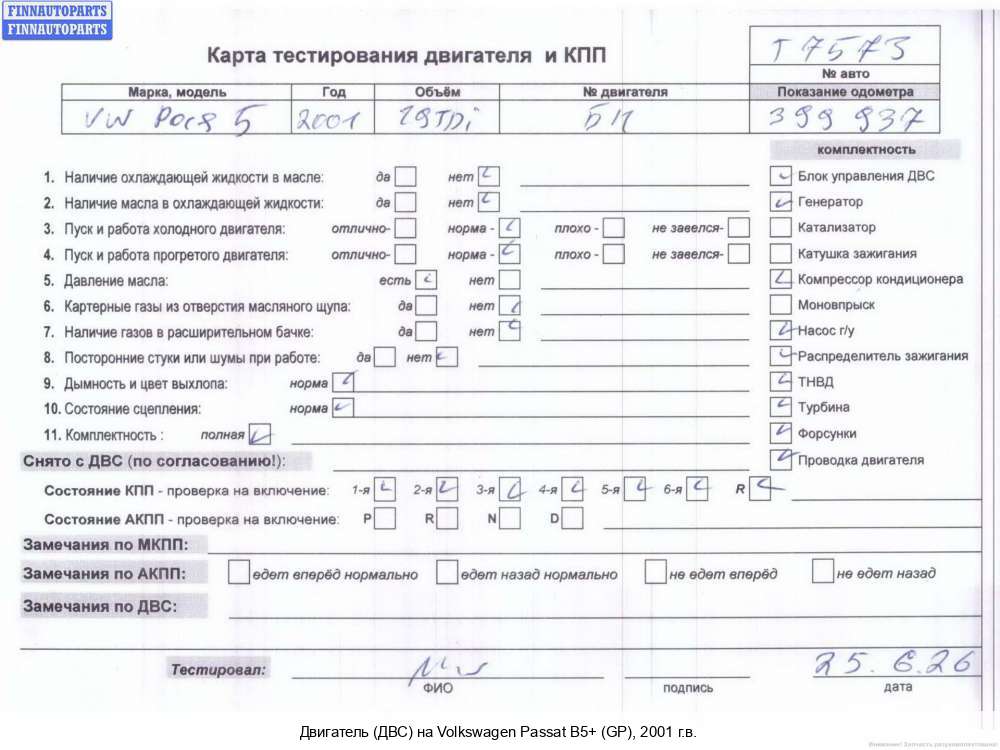 FINNAUTOPARTS
FINNAUTOPARTS
Карта тестирования двигателя и КПП
Т 7573
№ авто
Марка, модель Год Объём № двигателя Показание одометра
VW 5 2001 1.9TDi 399 937
комплектность
1. Наличие охлаждающей жидкости в масле: да нет Блок управления ДВС
2. Наличие масла в охлаждающей жидкости: да нет Генератор
3. Пуск и работа холодного двигателя: отлично- норма - плохо - не завелся- Катализатор
4. Пуск и работа прогретого двигателя: отлично- норма - плохо - не завелся- Катушка зажигания
5. Давление масла: есть нет Компрессор кондиционера
6. Картерные газы из отверстия масляного щупа: да нет Моновпрыск
7. Наличие газов в расширительном бачке: да нет Насос г/у
8. Посторонние стуки или шумы при работе: да нет Распределитель зажигания
9. Дымность и цвет выхлопа: норма ТНВД
10. Состояние сцепления: норма Турбина
11. Комплектность : полная Форсунки
Снято с ДВС (по согласованию!): Проводка двигателя
Состояние КПП - проверка на включение: 1-я 2-я 3-я 4-я 5-я 6-я R
Состояние АКПП - проверка на включение: P R N D
Замечания по МКПП:
Замечания по АКПП: едет вперёд нормально едет назад нормально не едет вперёд не едет назад
Замечания по ДВС:
Тестировал: 25.6.26
ФИО подпись дата
Двигатель (ДВС) на Volkswagen Passat B5+ (GP), 2001 г.в.